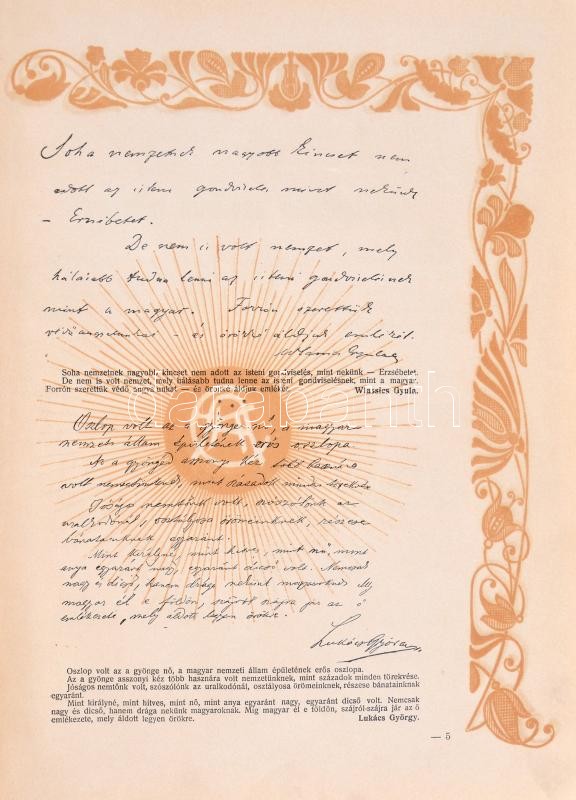 Soha nemzetnek nagyobb kincset nem
adott az isteni gondviselés, mint nekünk
– Erzsébetet.
De nem is volt nemzet, mely
hálásabb tudna lenni az isteni gondviselésnek
mint a magyar. Forrón szerettük
védőangyalunkat – és örökké áldjuk emlékét.
Wlassics Gyula
Soha nemzetnek nagyobb kincset nem adott az isteni gondviselés, mint nekünk — Erzsébetet.
De nem is volt nemzet, mely hálásabb tudna lenne az isteni gondviselésnek, mint a magyar.
Forrón szerettük védő angyalunkat — és örökké áldjuk emlékét. Wlassics Gyula.
Oszlop volt az a gyönge nő, a magyar
nemzeti állam épületének erős oszlopa.
Az a gyönge asszonyi kéz több hasznára
volt nemzetünknek, mint századok minden törekvése.
Jóságos nemtőnk volt, szószólónk az
uralkodónál, osztályosa örömeinknek, részese
bánatainknak egyaránt.
Mint királyné, mint hitves, mint nő, mint
anya egyaránt nagy, egyaránt dicső volt. Nemcsak
nagy és dicső, hanem drága nekünk magyaroknak. Míg
magyar él e földön, szájról szájra jár az ő
emlékezete, mely áldott legyen örökre.
Lukács György
Oszlop volt az a gyönge nő, a magyar nemzeti állam épületének erős oszlopa.
Az a gyönge asszonyi kéz több hasznára volt nemzetünknek, mint századok minden törekvése.
Jóságos nemtőnk volt, szószólónk az uralkodónál, osztályosa örömeinknek, részese bánatainknak
egyaránt.
Mint királyné, mint hitves, mint nő, mint anya egyaránt nagy, egyaránt dicső volt. Nemcsak
nagy és dicső, hanem drága nekünk magyaroknak. Míg magyar él e földön, szájról-szájra jár az ő
emlékezete, mely áldott legyen örökre. Lukács György.
— 5